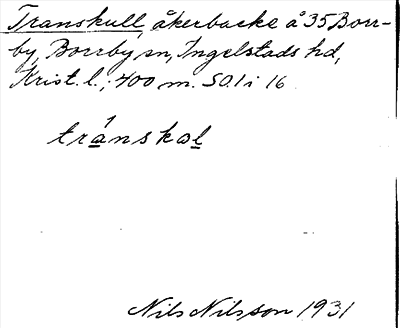 Transkull, åkerbacke å 35 Borr-
by, Borrby sn, Ingelstads hd,
Krist. l.; 400 m. SO. l i 16
tránskəl
Nils Nilsson 1931